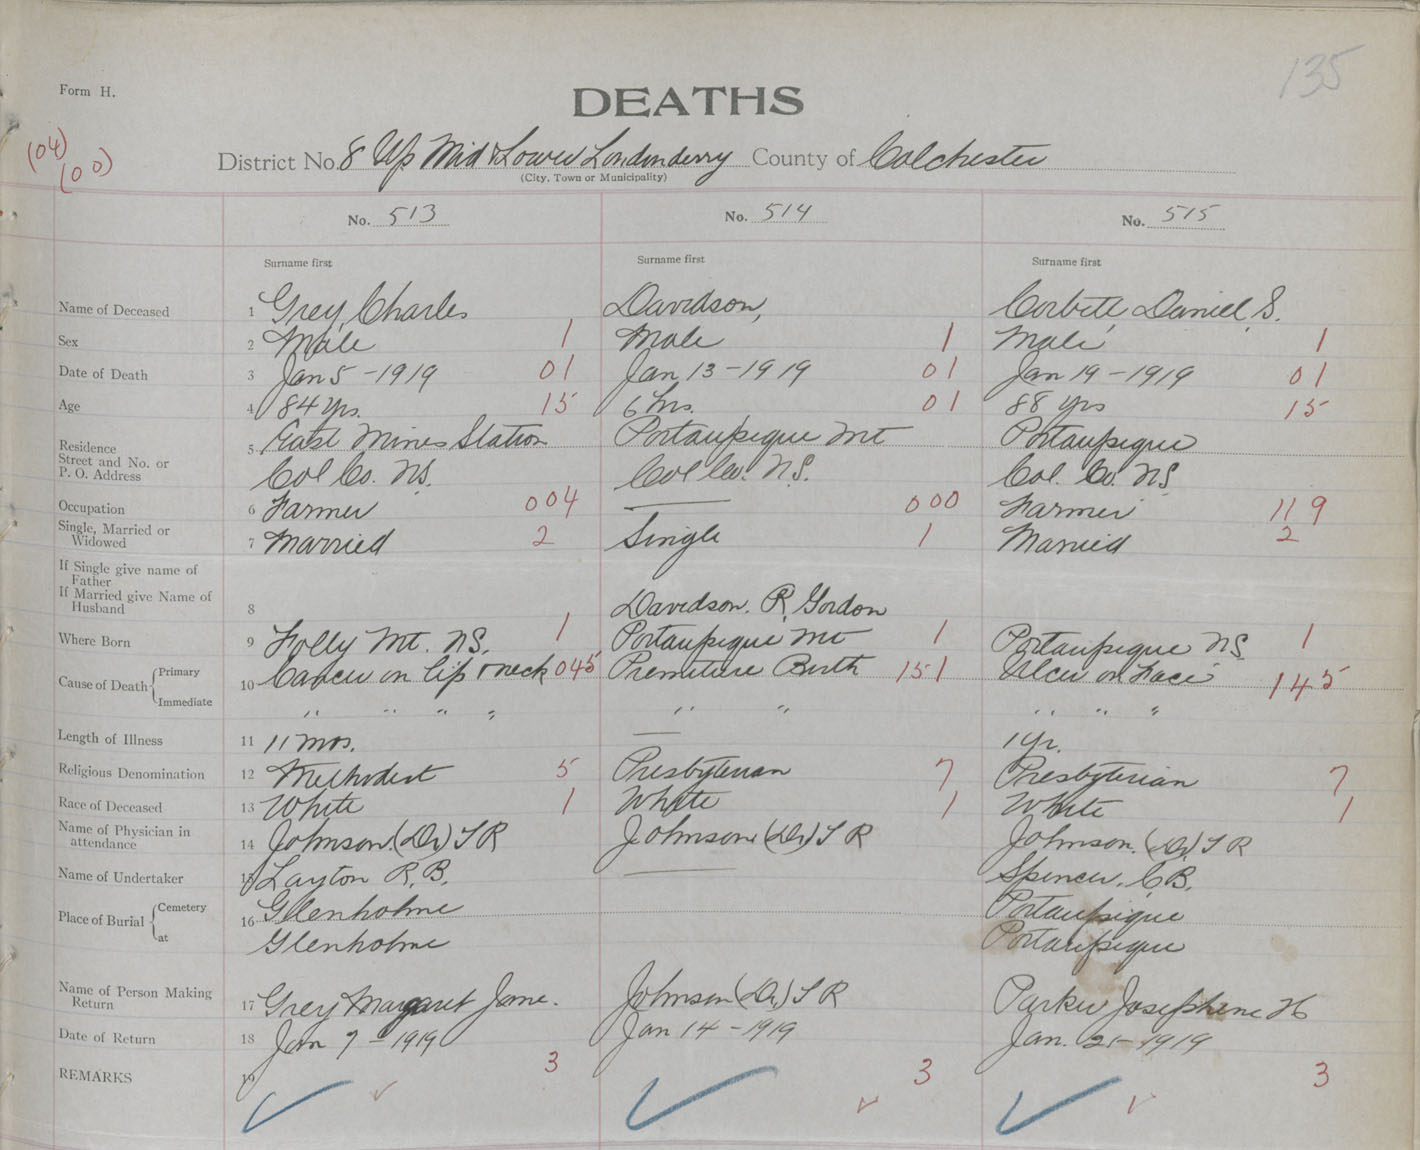 135
Form H.
DEATHS
(04)
(00)
District No. 8 Up Mid & Lower Londonderry County of Colchester
(City, Town or Municipality)
No. 513 No. 514 No. 515
Surname first Surname first Surname first
Name of Deceased 1 Grey, Charles Davidson, Corbett Daniel S.
Sex 2 Male 1 Male 1 Male 1
Date of Death 3 Jan 5-1919 01 Jan 13-1919 01 Jan 19-1919 01
Age 4 84 yrs. 15 6 hrs. 01 88 yrs 15
Residence
Street and No. or
P. O. Address 5 East Mines Station Portaupique Mt Portaupique
Col Co. N.S. Col Co. N.S. Col. Co. N.S.
Occupation 6 Farmer 004 — 000 Farmer 119
Single, Married or
Widowed 7 Married 2 Single 1 Married 2
If Single give name of
Father
If Married give Name of
Husband 8 Davidson. R. Gordon
Where Born 9 Folly Mt. N.S. 1 Portaupique Mt 1 Portaupique N.S. 1
Cause of Death { Primary 10 Cancer on lip & neck 045 Premiture Birth 151 Ulcer on Face 145
Immediate " " " " " " " " "
Length of Illness 11 11 mos. — 1 yr.
Religious Denomination 12 Methodist 5 Presbyterian 7 Presbyterian 7
Race of Deceased 13 White 1 White 1 White 1
Name of Physician in
attendance 14 Johnson. (Dr) T R Johnson (Dr) T R Johnson. (Dr) T R
Name of Undertaker 15 Layton R. B. — Spencer. C. B.
Place of Burial { Cemetery 16 Glenholme Portaupique
at Glenholme Portaupique
Name of Person Making
Return 17 Grey Margaret Jane. Johnson (Dr) T R Parker Josephine H
Date of Return 18 Jan 7-1919 Jan 14-1919 Jan. 21-1919
REMARKS 19 3 3 3